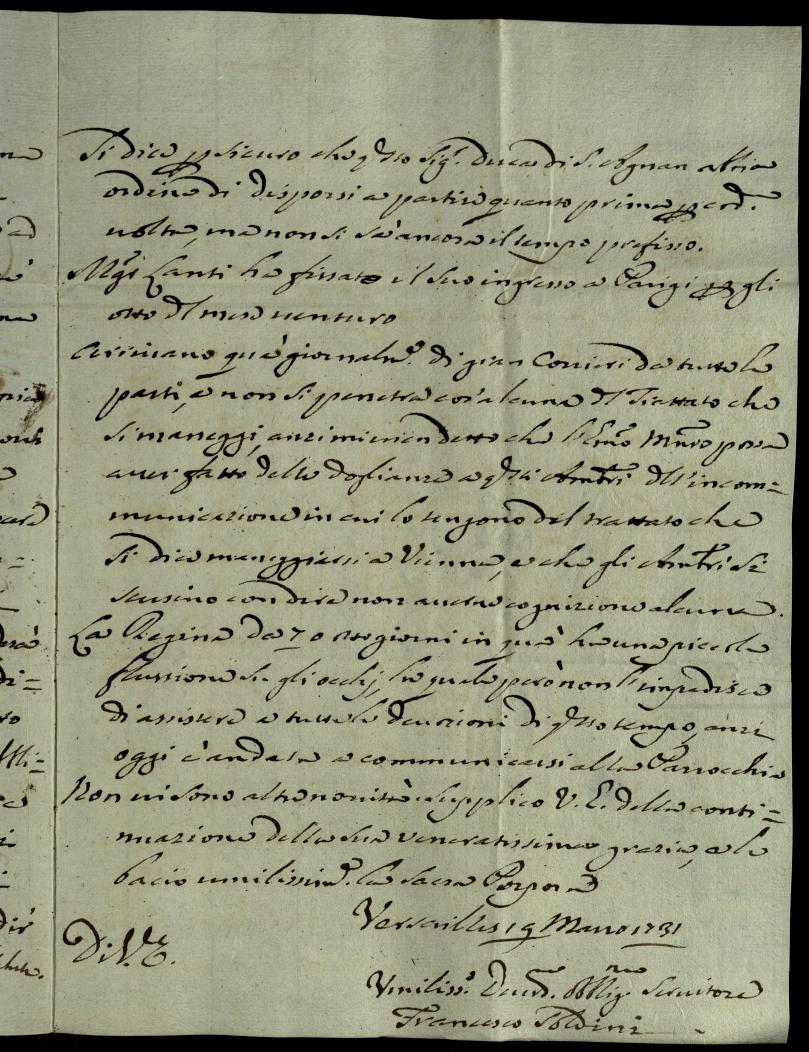 Si dice p sicuro che qsto Sigr. Duca di S. Agnan abbia
ordine di disporsi a partire quanto prima p cod.
volta, ma non si sà ancora il tempo prefisso.
Mgr Lanti ha fissato il suo ingresso a Parigi p gli
otto dl mese venturo
Arrivano quà giornalme. di gran Corrieri da tutte le
parti, e non si penetra cos'alcuna dl Trattato che
si maneggi, anzi mi vien detto che l'Emo Mro possa
aver fatto delle doglianze a qsti Ambri dll'incom=
municazione in cui lo tengono del trattato che
si dice maneggiarsi a Vienna, e che gli Ambri si
scusino con dire non averne cognizione alcuna.
La Regina da 7 o otto giorni in quà ha una piccola
flussione su gli occhj, la quale però non l'impedisce
di assistere a tutte le devozioni di qsto tempo, anzi
oggi è andata a communicarsi alla Parrocchia
Non vi sono altre novità e supplico V. E. della conti=
nuazione della sua veneratissima grazia, e le
bacio umilissime. la Sacra Porpora
Versailles 19 Marzo 1731
Di V. E.
Umiliss.o Devo. Obblig.mo Servitore
Francesco